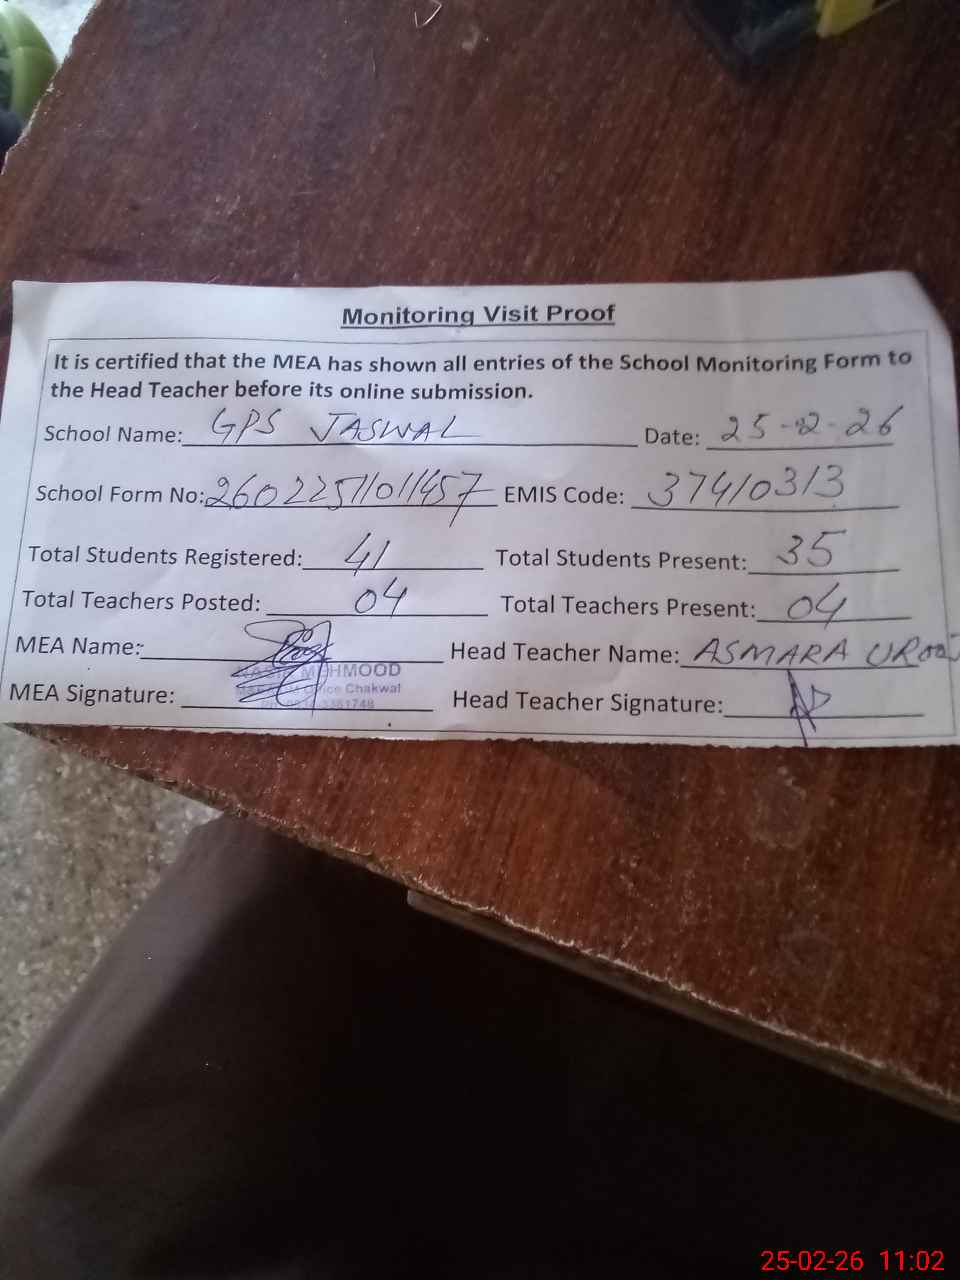 Monitoring Visit Proof
It is certified that the MEA has shown all entries of the School Monitoring Form to
the Head Teacher before its online submission.
School Name: GPS JASWAL Date: 25-2-26
School Form No: 26022511011457 EMIS Code: 37410313
Total Students Registered: 41 Total Students Present: 35
Total Teachers Posted: 04 Total Teachers Present: 04
MEA Name: Head Teacher Name: ASMARA UROOJ
MEHMOOD
Office Chakwal
MEA Signature: Head Teacher Signature:
25-02-26 11:02